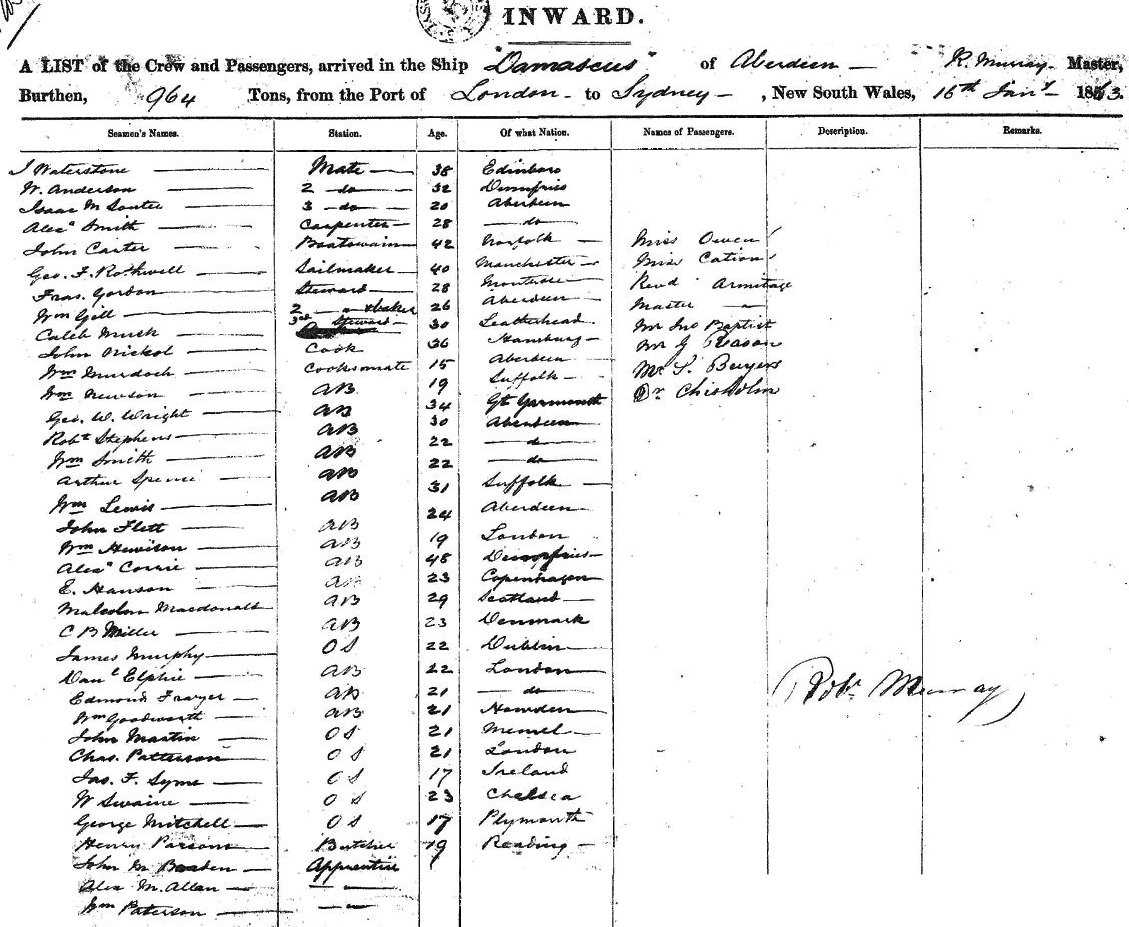 INWARD.
A LIST of the Crew and Passengers, arrived in the Ship "Damascus" of Aberdeen — R. Murray Master,
Burthen, 964 Tons, from the Port of London - to Sydney -, New South Wales, 16th Jany 1863.
Seamen's Names. Station. Age. Of what Nation. Names of Passengers. Description. Remarks.
J Waterstone Mate 38 Edinboro
W. Anderson 2 do 32 Dumfries
Isaac M Souter 3 do 20 Aberdeen
Alexr Smith Carpenter 28 do
John Carter Boatswain 42 Norfolk Miss Owen
Geo. F. Rothwell Sailmaker 40 Manchester Miss Cation
Fras. Gordon Steward 28 Montrose Revd Armitage
Wm Gill 2 " & baker 26 Aberdeen Master —
Caleb Musk 3rd Steward 30 Leatherhead Mr Jno Baptist
John Nickol Cook 36 Hamburg Mr G Reason
Wm Murdoch Cooksmate 15 Aberdeen Mr S. Buyers
Wm Newson AB 19 Suffolk Dr Chisholm
Geo. W. Wright AB 34 Gt Yarmouth
Robt Stephens AB 30 Aberdeen
Wm Smith AB 22 do
Arthur Spence AB 22 do
Wm Lewis AB 31 Suffolk
John Flett AB 24 Aberdeen
Wm Hewison AB 19 London
Alexr Corrie AB 48 Dumfries
E. Hanson AB 23 Copenhagen
Malcolm Macdonald AB 29 Scotland
C B Miller AB 23 Denmark
James Murphy OS 22 Dublin
Danl Elphie AB 22 London
Edmond Frayer AB 21 do
Wm Goodworth AB 21 Howden
John Martin OS 21 Memel
Chas. Patterson OS 21 London
Jas. F. Syme OS 17 Ireland
W Swaine OS 23 Chelsea
George Mitchell OS 17 Plymouth
Henry Parsons Butcher 19 Reading
John M Apprentice
Alex M. Allan — —
Wm Paterson — —
Robt Murray